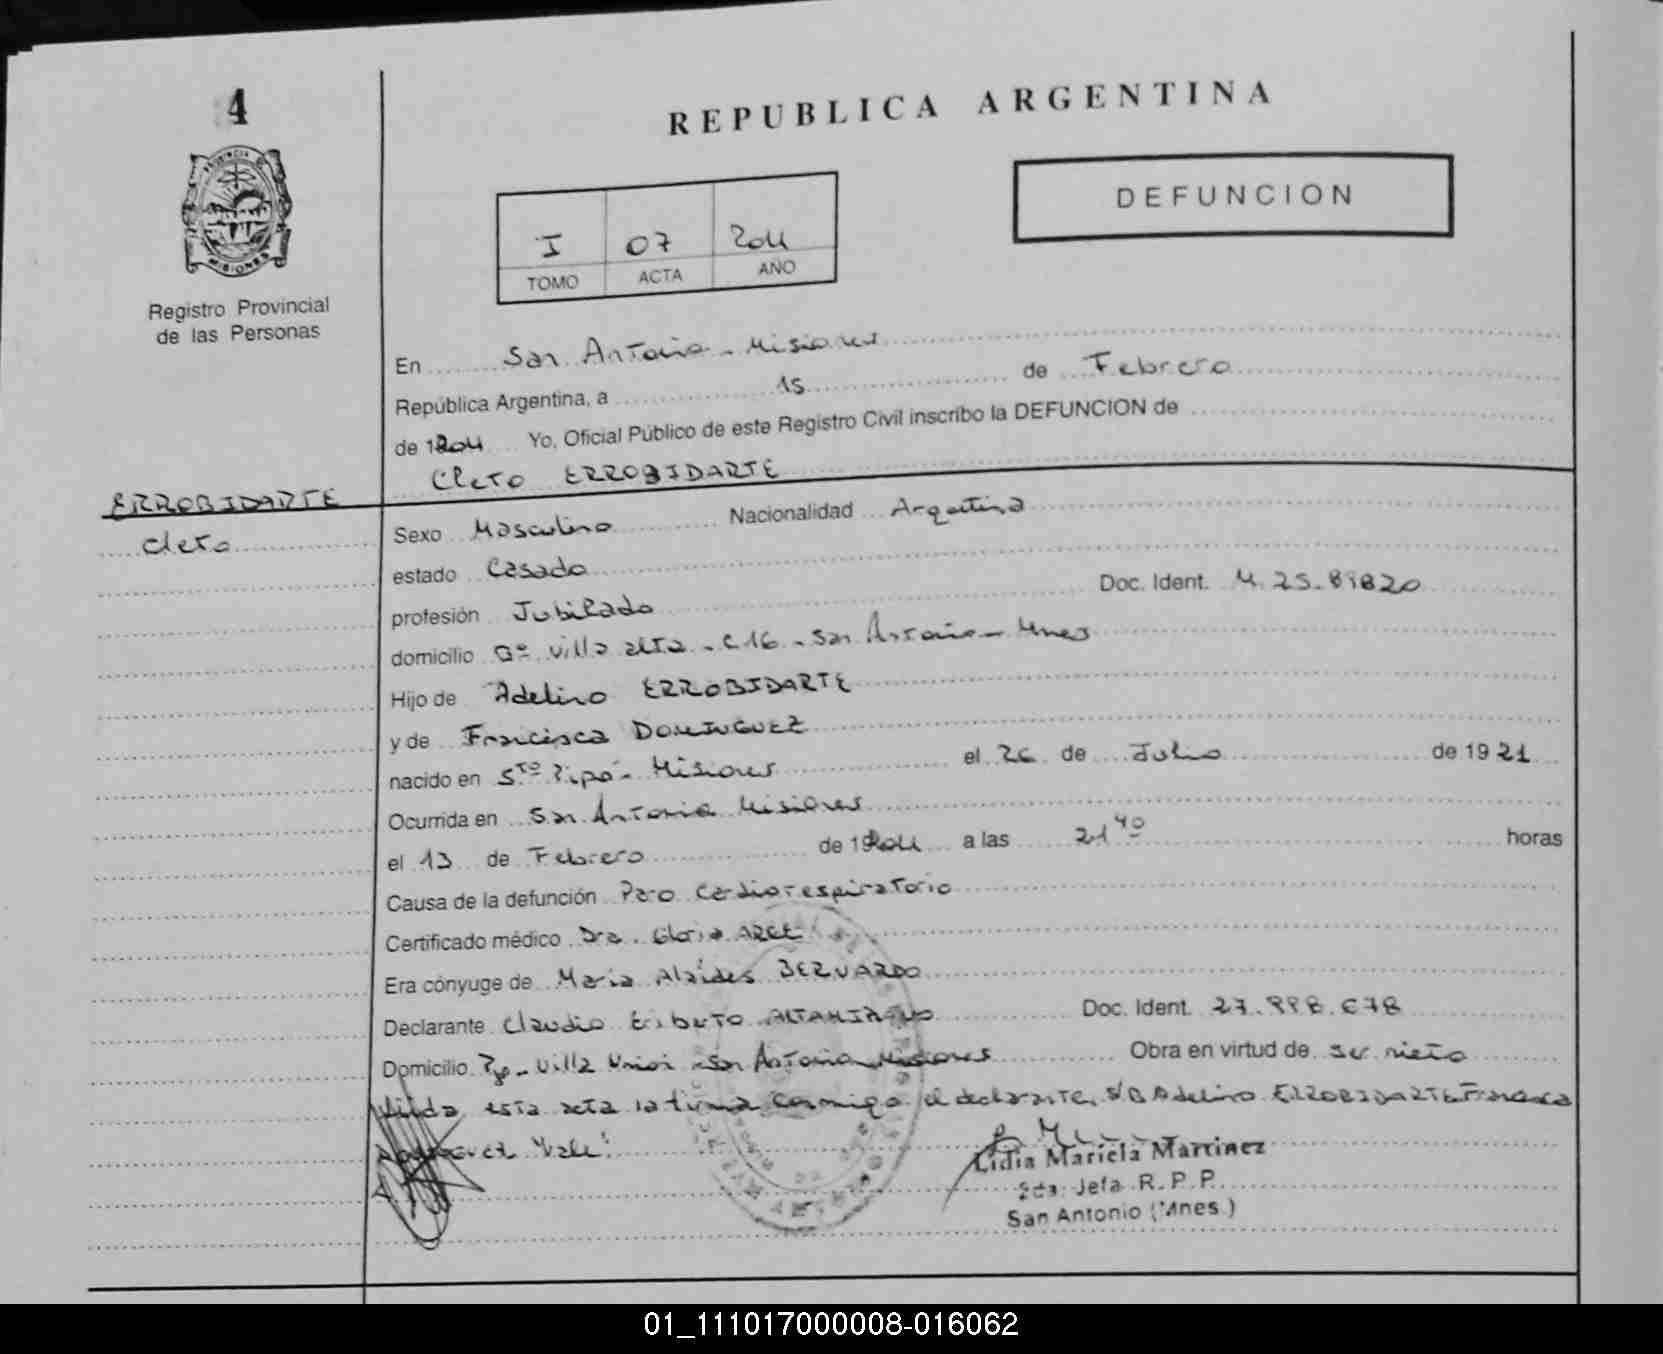 4
REPUBLICA ARGENTINA
PROVINCIA DE
MISIONES
DEFUNCION
I 07 2011
TOMO ACTA AÑO
Registro Provincial
de las Personas
En San Antonio - Misiones
República Argentina, a 15 de Febrero
de 2011 Yo, Oficial Público de este Registro Civil inscribo la DEFUNCION de
Cleto ERROBIDARTE
ERROBIDARTE
Cleto
Sexo Masculino Nacionalidad Argentina
estado Casado
profesión Jubilado Doc. Ident. M.
domicilio Bº Villa alta - C 16 - San Antonio - Mnes
Hijo de Adelino ERROBIDARTE
y de Francisca DOMINGUEZ
nacido en Sto Pipó - Misiones el 26 de Julio de 1921
Ocurrida en San Antonio Misiones
el 13 de Febrero de 2011 a las 21 40 horas
Causa de la defunción Paro Cardiorespiratorio
Certificado médico Dra. Gloria ARCE
Era cónyuge de Maria Alaides BERNARDO
Declarante Claudio Eriberto ALTAMIRANO Doc. Ident. 27.998.678
Domicilio Villa Union - San Antonio - Misiones Obra en virtud de ser nieto
Leida esta acta la firma conmigo el declarante, S/B Adelino ERROBIDARTE Francisca
Dominguez Vale!
Lidia Mariela Martinez
2da. Jefa R. P. P.
San Antonio (Mnes.)
01_111017000008-016062